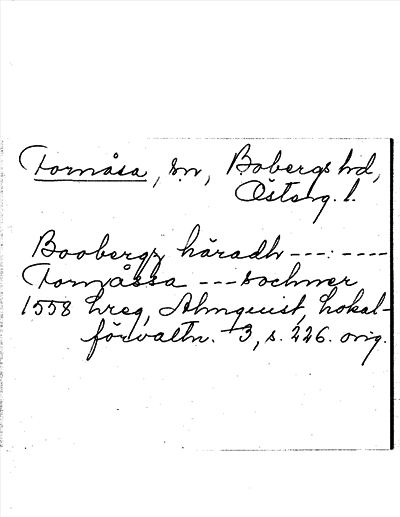 Fornåsa, sn, Bobergs hd,
Österg. l.
Boobergz häradh ---:----
Fornåssa --- sochner
1558 hreg, Almquist, Lokal-
förvaltn. 3, s. 226. orig.